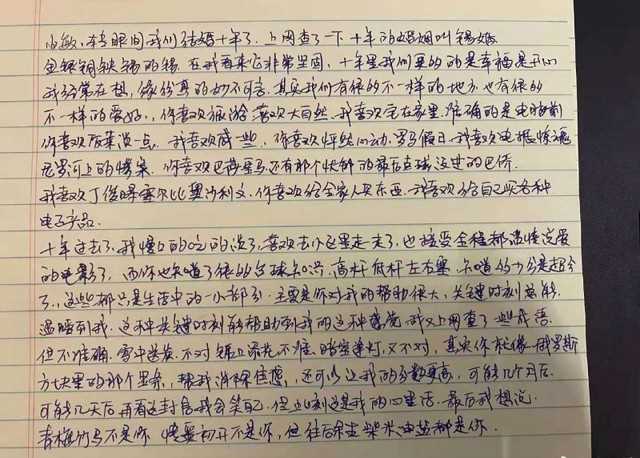 小敏,转眼间我们结婚十年了,上网查了一下十年的婚姻叫锡婚
金银铜铁锡的锡,在我看来它非常坚固,十年里我们更多的是幸福是开心
我经常在想,缘份真的妙不可言,其实我们有很多不一样的地方也有很多
不一样的爱好,你喜欢旅游喜欢大自然,我喜欢宅在家里,准确的是电脑前
你喜欢饭菜淡一点,我喜欢咸一些,你喜欢怦然心动,罗马假日,我喜欢电锯惊魂
尼罗河上的惨案,你喜欢巴蒂罗马还有那个忧郁的最后点球运过的巴乔
我喜欢丁俊晖塞尔比奥沙利文,你喜欢给全家人买东西,我喜欢给自己买各种
电子产品.
十年过去了,我慢慢的吃的淡了,喜欢去公园里走走了,也接受全程都温情浪漫
的电影了,而你也知道了很多台球知识,高杆低杆左右塞,知道的比我是超分
了,这些都只是生活中的一小部分,主要是你对我的帮助很大,关键时刻总能
温暖到我,这种关键时刻能帮助到我的这种感觉,我又上网查了一些成语
但不准确,雪中送炭,不对,锦上添花,不准,暗室逢灯,又不对,其实你就像俄罗斯
方块里的那个竖条,帮我消除焦虑,还可以让我的分数更高,可能几个月后
可能几天后再看这封信我会笑自己,但此刻这是我的心里话,最后我想说
青梅竹马不是你 情窦初开不是你,但往后余生柴米油盐都是你.